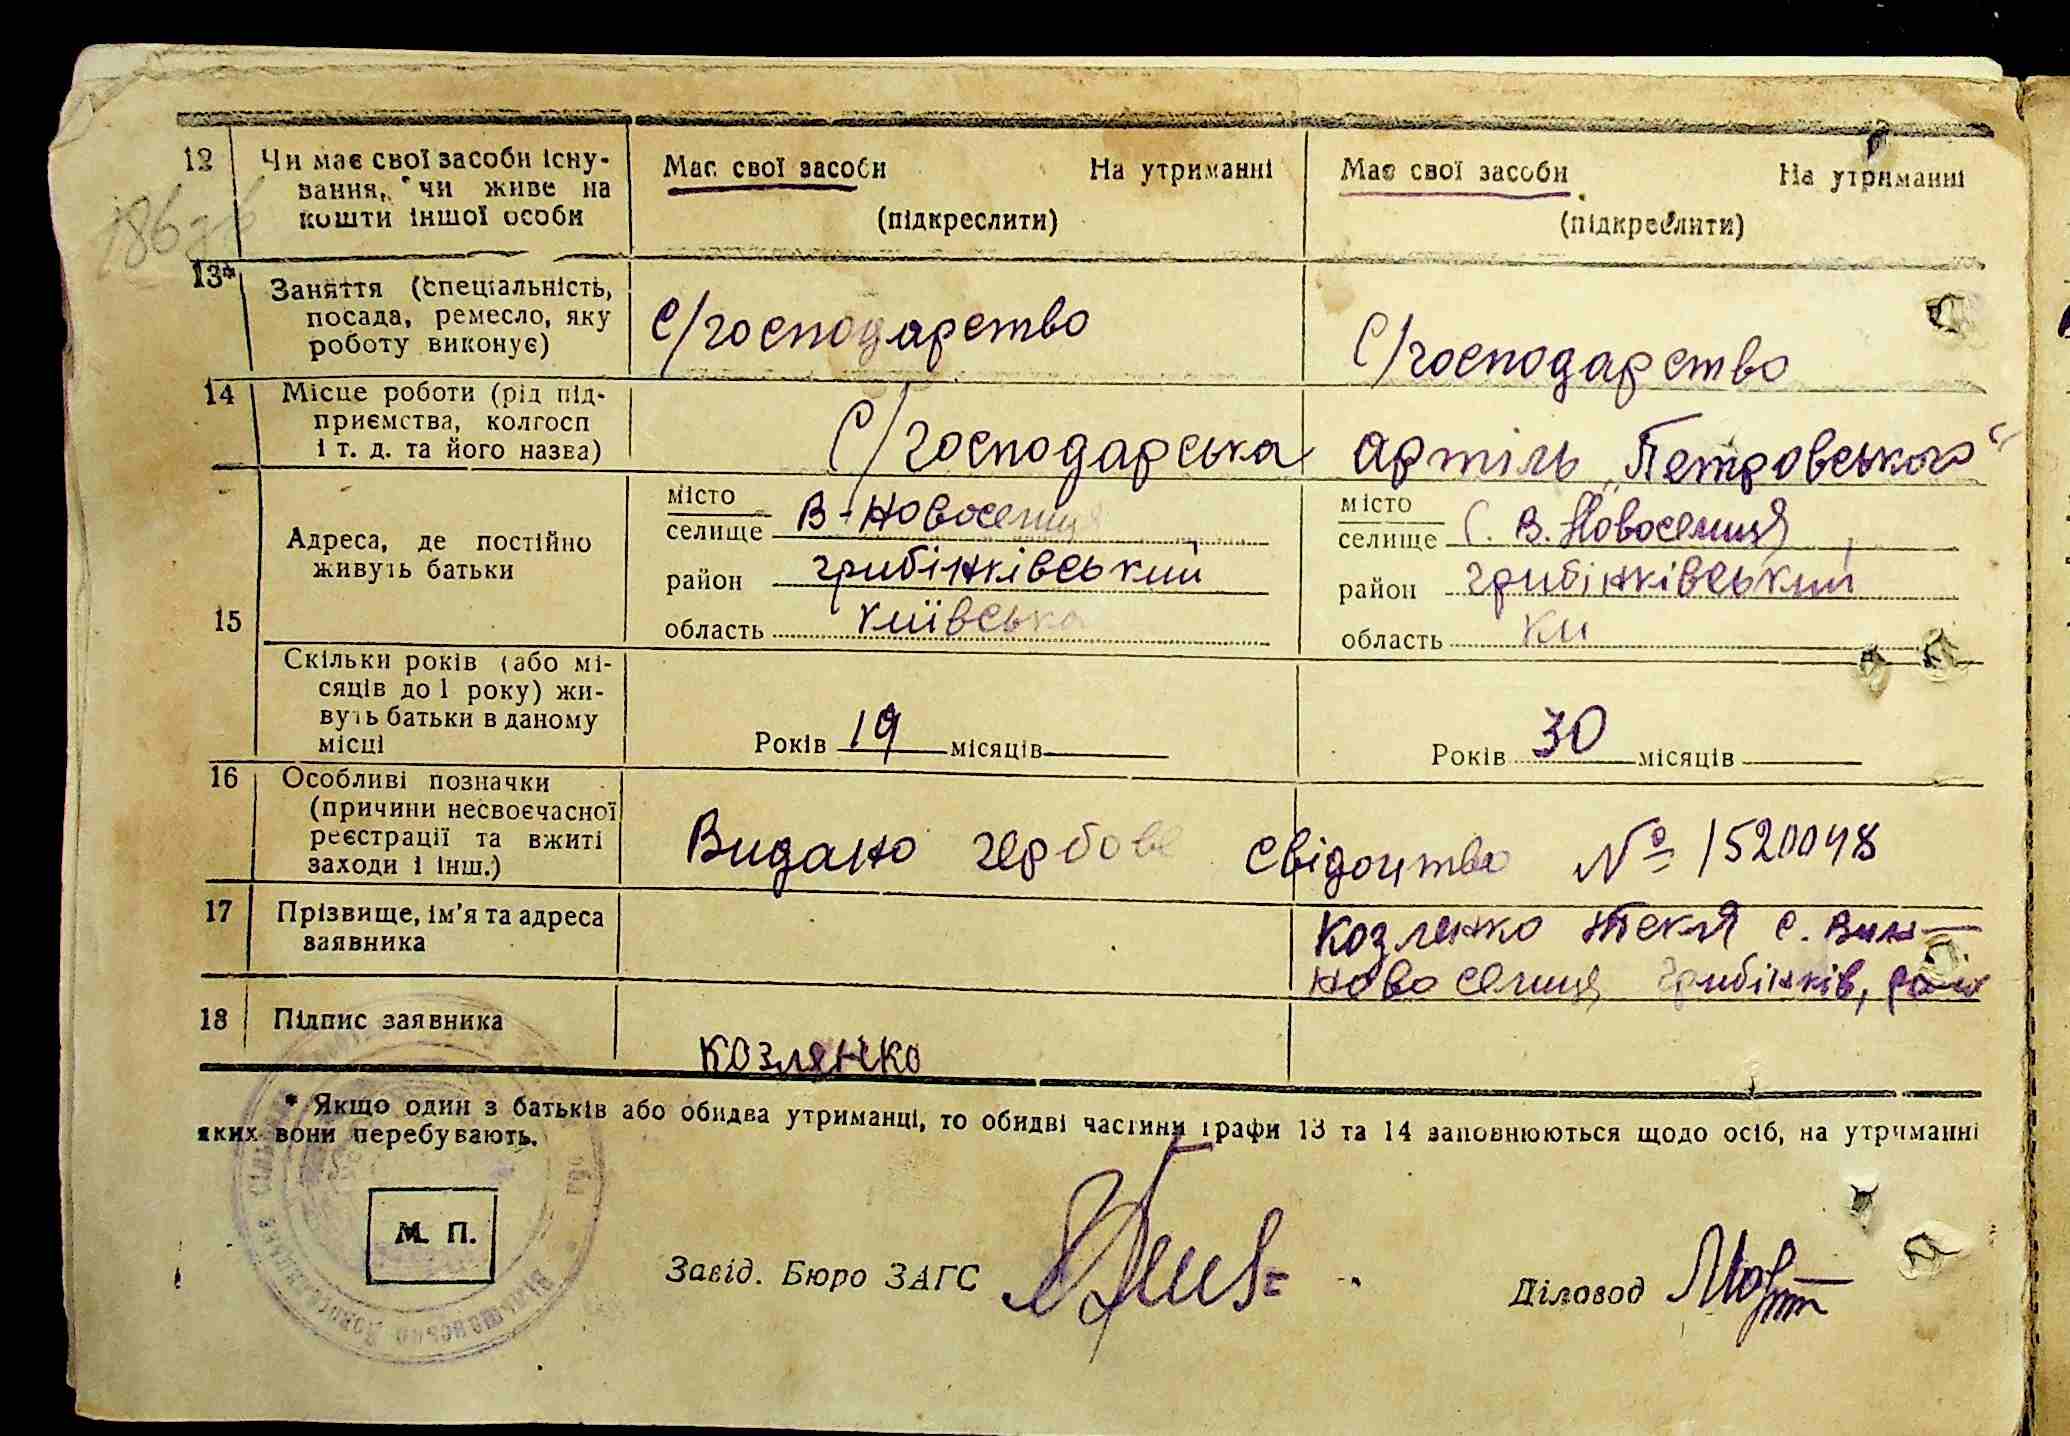 12 Чи має свої засоби існу-
вання, чи живе на
кошти іншої особи
Має свої засоби На утриманні
(підкреслити)
Має свої засоби На утриманні
(підкреслити)
13* Заняття (спеціальність,
посада, ремесло, яку
роботу виконує)
С/господарство
С/господарство
14 Місце роботи (рід під-
приємства, колгосп
і т. д. та його назва)
С/господарська артіль „Петровського“
15 Адреса, де постійно
живуть батьки
місто
селище В-Новоселиця
район грибінківський
область київська
місто
селище С. В. Новоселиця
район грибінківський
область ки
Скільки років (або мі-
сяців до 1 року) жи-
вуть батьки в даному
місці
Років 19 місяців
Років 30 місяців
16 Особливі позначки
(причини несвоєчасної
реєстрації та вжиті
заходи і інш.)
Видано гербове свідоцтво № 1520048
17 Прізвище, ім'я та адреса
заявника
Козленко Текля с. Вин-
Новоселиця грибінків, рай
18 Підпис заявника
козлянко
* Якщо один з батьків або обидва утриманці, то обидві частини графи 13 та 14 заповнюються щодо осіб, на утриманні
яких вони перебувають.
М. П.
Завід. Бюро ЗАГС
Діловод